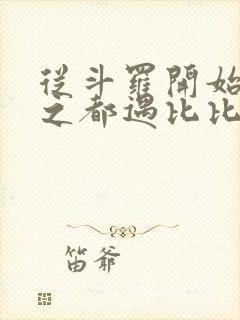 從斗羅開始
之都遇比比
笛爺